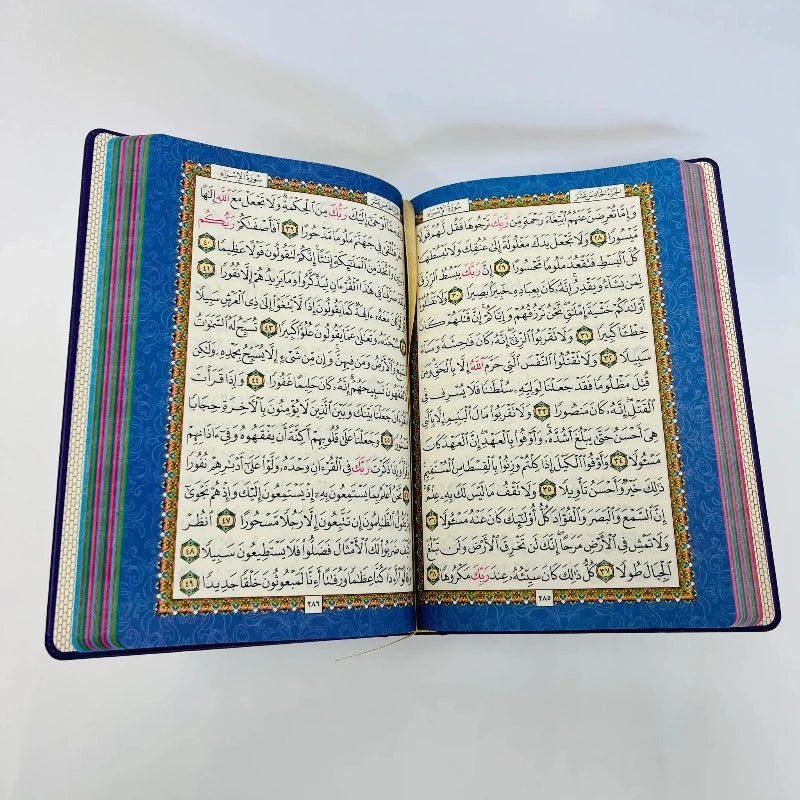 الجزء الخامس عشر
سُورَةُ الإِسْرَاءِ
وَإِمَّا تُعْرِضَنَّ عَنْهُمُ ٱبْتِغَآءَ رَحْمَةٍ مِّن رَّبِّكَ تَرْجُوهَا فَقُل لَّهُمْ قَوْلًا
مَّيْسُورًا ٢٨ وَلَا تَجْعَلْ يَدَكَ مَغْلُولَةً إِلَىٰ عُنُقِكَ وَلَا تَبْسُطْهَا
كُلَّ ٱلْبَسْطِ فَتَقْعُدَ مَلُومًا مَّحْسُورًا ٢٩ إِنَّ رَبَّكَ يَبْسُطُ ٱلرِّزْقَ
لِمَن يَشَآءُ وَيَقْدِرُ إِنَّهُۥ كَانَ بِعِبَادِهِۦ خَبِيرًۢا بَصِيرًا ٣٠ وَلَا تَقْتُلُوٓا۟
أَوْلَٰدَكُمْ خَشْيَةَ إِمْلَٰقٍ نَّحْنُ نَرْزُقُهُمْ وَإِيَّاكُمْ إِنَّ قَتْلَهُمْ كَانَ
خِطْـًٔا كَبِيرًا ٣١ وَلَا تَقْرَبُوا۟ ٱلزِّنَىٰٓ إِنَّهُۥ كَانَ فَٰحِشَةً وَسَآءَ
سَبِيلًا ٣٢ وَلَا تَقْتُلُوا۟ ٱلنَّفْسَ ٱلَّتِى حَرَّمَ ٱللَّهُ إِلَّا بِٱلْحَقِّ وَمَن
قُتِلَ مَظْلُومًا فَقَدْ جَعَلْنَا لِوَلِيِّهِۦ سُلْطَٰنًا فَلَا يُسْرِف فِّى
ٱلْقَتْلِ إِنَّهُۥ كَانَ مَنصُورًا ٣٣ وَلَا تَقْرَبُوا۟ مَالَ ٱلْيَتِيمِ إِلَّا بِٱلَّتِى
هِىَ أَحْسَنُ حَتَّىٰ يَبْلُغَ أَشُدَّهُۥ وَأَوْفُوا۟ بِٱلْعَهْدِ إِنَّ ٱلْعَهْدَ كَانَ
مَسْـُٔولًا ٣٤ وَأَوْفُوا۟ ٱلْكَيْلَ إِذَا كِلْتُمْ وَزِنُوا۟ بِٱلْقِسْطَاسِ ٱلْمُسْتَقِيمِ
ذَٰلِكَ خَيْرٌ وَأَحْسَنُ تَأْوِيلًا ٣٥ وَلَا تَقْفُ مَا لَيْسَ لَكَ بِهِۦ عِلْمٌ
إِنَّ ٱلسَّمْعَ وَٱلْبَصَرَ وَٱلْفُؤَادَ كُلُّ أُو۟لَٰٓئِكَ كَانَ عَنْهُ مَسْـُٔولًا ٣٦
وَلَا تَمْشِ فِى ٱلْأَرْضِ مَرَحًا إِنَّكَ لَن تَخْرِقَ ٱلْأَرْضَ وَلَن تَبْلُغَ
ٱلْجِبَالَ طُولًا ٣٧ كُلُّ ذَٰلِكَ كَانَ سَيِّئُهُۥ عِندَ رَبِّكَ مَكْرُوهًا ٣٨
٢٨٥
سُورَةُ الإِسْرَاءِ
ذَٰلِكَ مِمَّآ أَوْحَىٰٓ إِلَيْكَ رَبُّكَ مِنَ ٱلْحِكْمَةِ وَلَا تَجْعَلْ مَعَ ٱللَّهِ إِلَٰهًا
ءَاخَرَ فَتُلْقَىٰ فِى جَهَنَّمَ مَلُومًا مَّدْحُورًا ٣٩ أَفَأَصْفَىٰكُمْ رَبُّكُم
بِٱلْبَنِينَ وَٱتَّخَذَ مِنَ ٱلْمَلَٰٓئِكَةِ إِنَٰثًا إِنَّكُمْ لَتَقُولُونَ قَوْلًا عَظِيمًا ٤٠
وَلَقَدْ صَرَّفْنَا فِى هَٰذَا ٱلْقُرْءَانِ لِيَذَّكَّرُوا۟ وَمَا يَزِيدُهُمْ إِلَّا نُفُورًا ٤١
قُل لَّوْ كَانَ مَعَهُۥٓ ءَالِهَةٌ كَمَا يَقُولُونَ إِذًا لَّٱبْتَغَوْا۟ إِلَىٰ ذِى ٱلْعَرْشِ سَبِيلًا
٤٢ سُبْحَٰنَهُۥ وَتَعَٰلَىٰ عَمَّا يَقُولُونَ عُلُوًّا كَبِيرًا ٤٣ تُسَبِّحُ لَهُ ٱلسَّمَٰوَٰتُ
ٱلسَّبْعُ وَٱلْأَرْضُ وَمَن فِيهِنَّ وَإِن مِّن شَىْءٍ إِلَّا يُسَبِّحُ بِحَمْدِهِۦ وَلَٰكِن
لَّا تَفْقَهُونَ تَسْبِيحَهُمْ إِنَّهُۥ كَانَ حَلِيمًا غَفُورًا ٤٤ وَإِذَا قَرَأْتَ
ٱلْقُرْءَانَ جَعَلْنَا بَيْنَكَ وَبَيْنَ ٱلَّذِينَ لَا يُؤْمِنُونَ بِٱلْءَاخِرَةِ حِجَابًا
مَّسْتُورًا ٤٥ وَجَعَلْنَا عَلَىٰ قُلُوبِهِمْ أَكِنَّةً أَن يَفْقَهُوهُ وَفِىٓ ءَاذَانِهِمْ
وَقْرًا وَإِذَا ذَكَرْتَ رَبَّكَ فِى ٱلْقُرْءَانِ وَحْدَهُۥ وَلَّوْا۟ عَلَىٰٓ أَدْبَٰرِهِمْ نُفُورًا
٤٦ نَّحْنُ أَعْلَمُ بِمَا يَسْتَمِعُونَ بِهِۦٓ إِذْ يَسْتَمِعُونَ إِلَيْكَ وَإِذْ هُمْ نَجْوَىٰٓ
إِذْ يَقُولُ ٱلظَّٰلِمُونَ إِن تَتَّبِعُونَ إِلَّا رَجُلًا مَّسْحُورًا ٤٧ ٱنظُرْ
كَيْفَ ضَرَبُوا۟ لَكَ ٱلْأَمْثَالَ فَضَلُّوا۟ فَلَا يَسْتَطِيعُونَ سَبِيلًا ٤٨
وَقَالُوٓا۟ أَءِذَا كُنَّا عِظَٰمًا وَرُفَٰتًا أَءِنَّا لَمَبْعُوثُونَ خَلْقًا جَدِيدًا ٤٩
٢٨٦